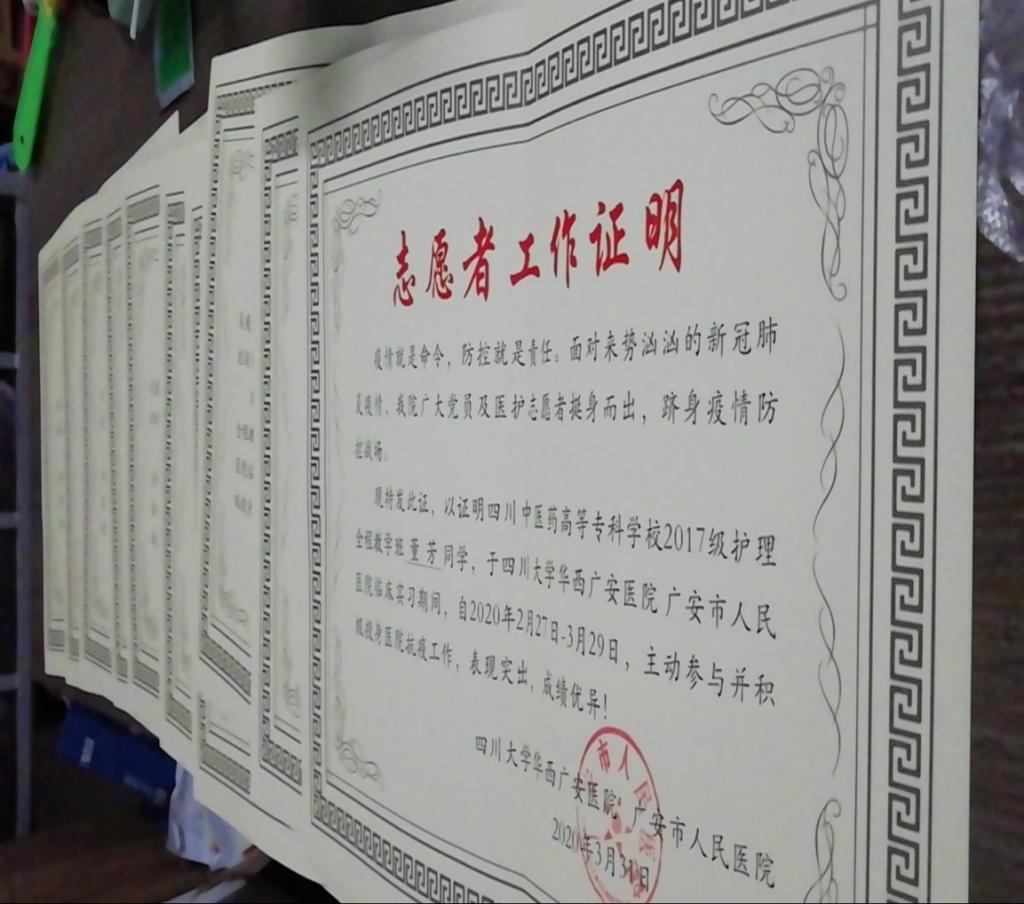 志愿者工作证明
疫情就是命令，防控就是责任。面对来势汹汹的新冠肺
炎疫情，我院广大党员及医护志愿者挺身而出，跻身疫情防
控战场。
现特发此证，以证明四川中医药高等专科学校2017级护理
全程教学班董芳同学，于四川大学华西广安医院 广安市人民
医院临床实习期间，自2020年2月27日-3月29日，主动参与并积
极投身医院抗疫工作，表现突出，成绩优异！
四川大学华西广安医院 广安市人民医院
2020年3月31日
市人民